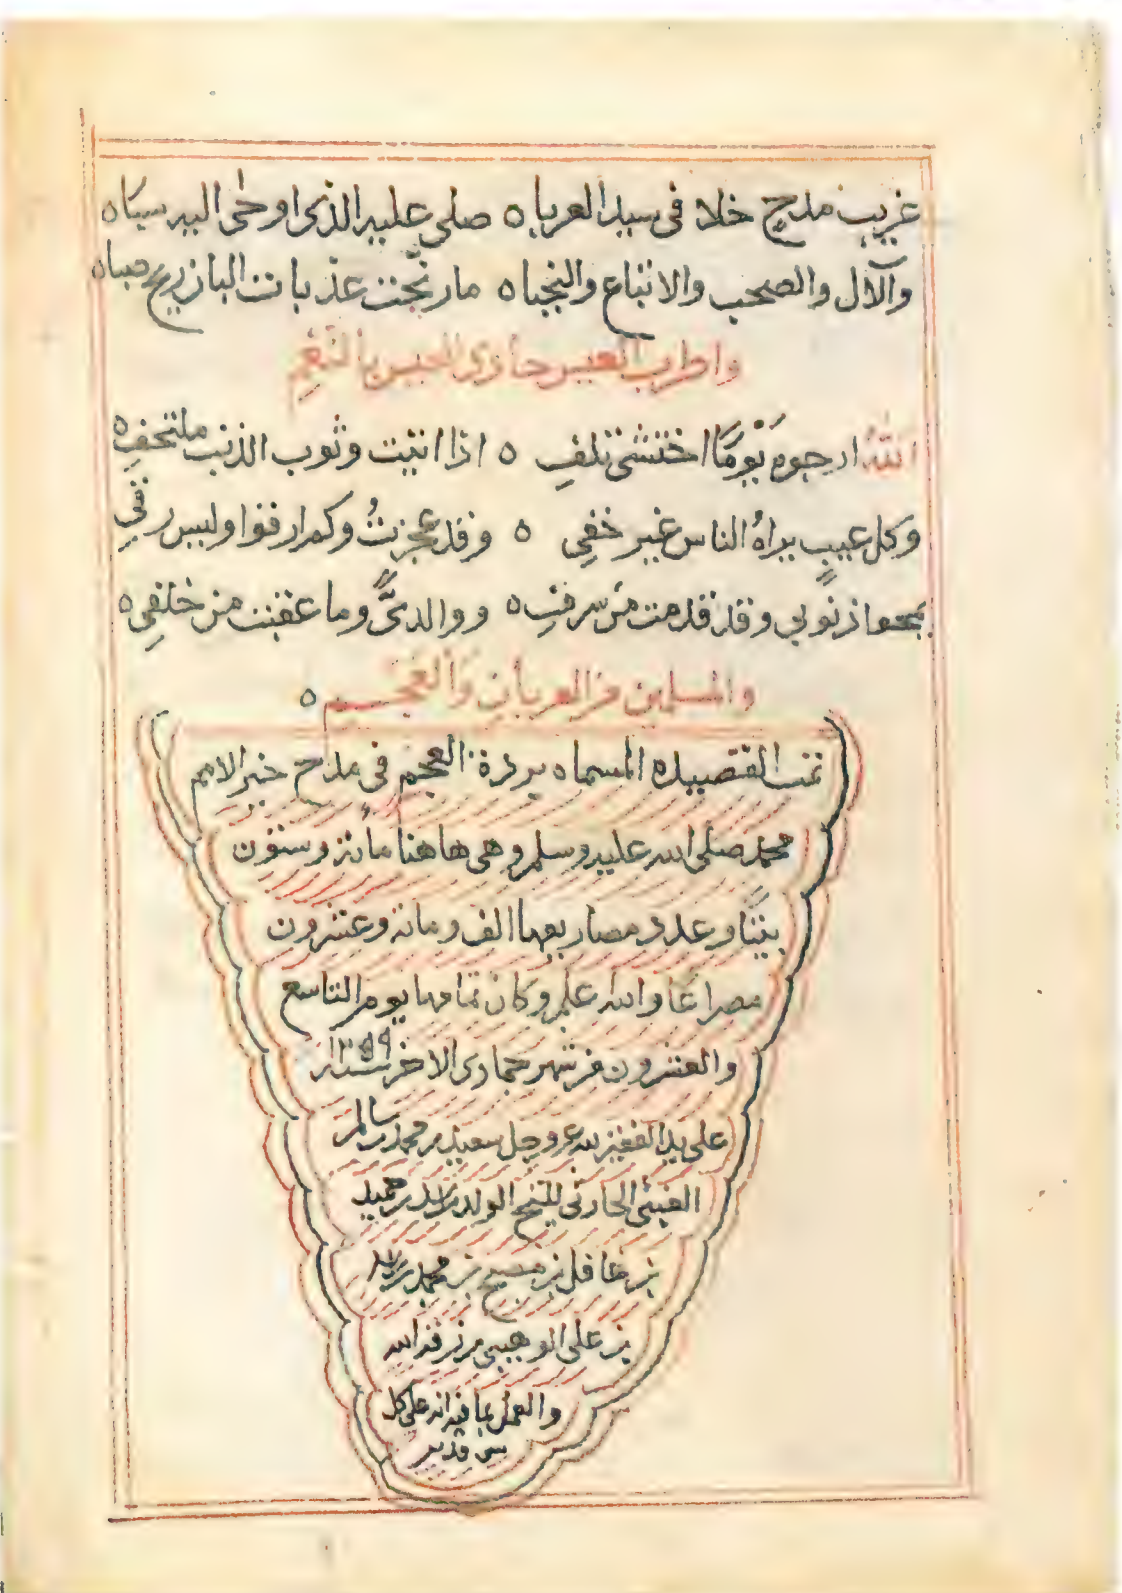 غريب مدح خلا في سيد العرباه صلى عليه الذى اوحى اليه سباه
والآل والصحب والاتباع والنجباه مارنّحت عذبات البان ريح صباه
واطرب العيس حادى العيس بالنغم
الله ارجوه يَوْمًا اختشى تلفِ ه اذا اتيت وثوب الذنب ملتحفِ ه
وكل عيبٍ يراهُ الناس غير خفيِ ه وقد عجزتُ وكم ارفوا وليس رفيِ
يمحوا ذنوبي وقد قدمت من سرفِ ه ووالدىَّ وما عقبت من خلفيِ ه
والمسلمين من العربان والعجم ه
تمت القصيده المسماه بردة العجم في مدح خير الامم
محمد صلى الله عليه وسلم وهى هاهنا مائة وستون
بيتًا وعدد مصاريعها الف ومائة وعشرون
مصراعًا والله اعلم وكان تمامها يوم التاسع
والعشرون من شهر جمادى الاخر سنة ١٣٥٩
على يد الفقير لله عز وجل سعيد بن محمد بن سالم
الحارثي للشيخ الولد حميد
بن مسبح بن محمد
بن على الوهيبى رزقه الله
والعمل بما فيه انه على كل
شئ قدير